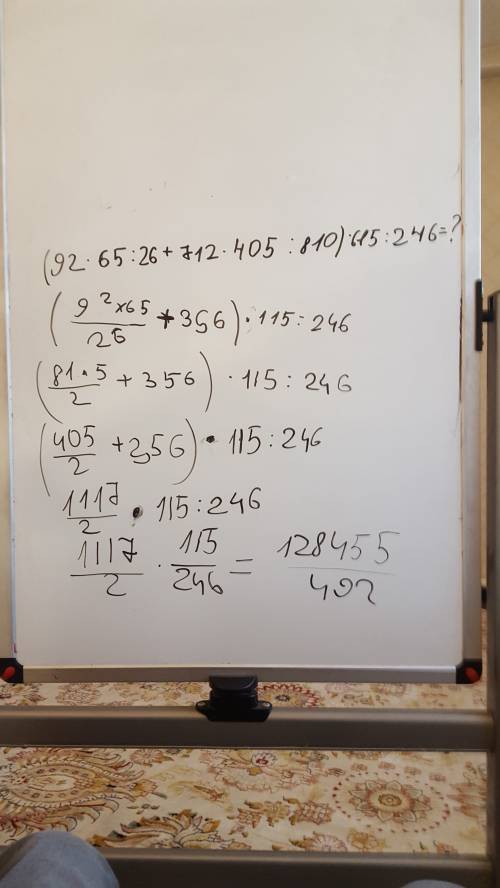 (92 · 65 : 26 + 712 · 405 : 810) · 615 : 246 = ?
( 9² × 65 / 26 + 356 ) · 115 : 246
( 81 · 5 / 2 + 356 ) · 115 : 246
( 405 / 2 + 356 ) · 115 : 246
1117 / 2 · 115 : 246
1117 / 2 · 115 / 246 = 128455 / 492